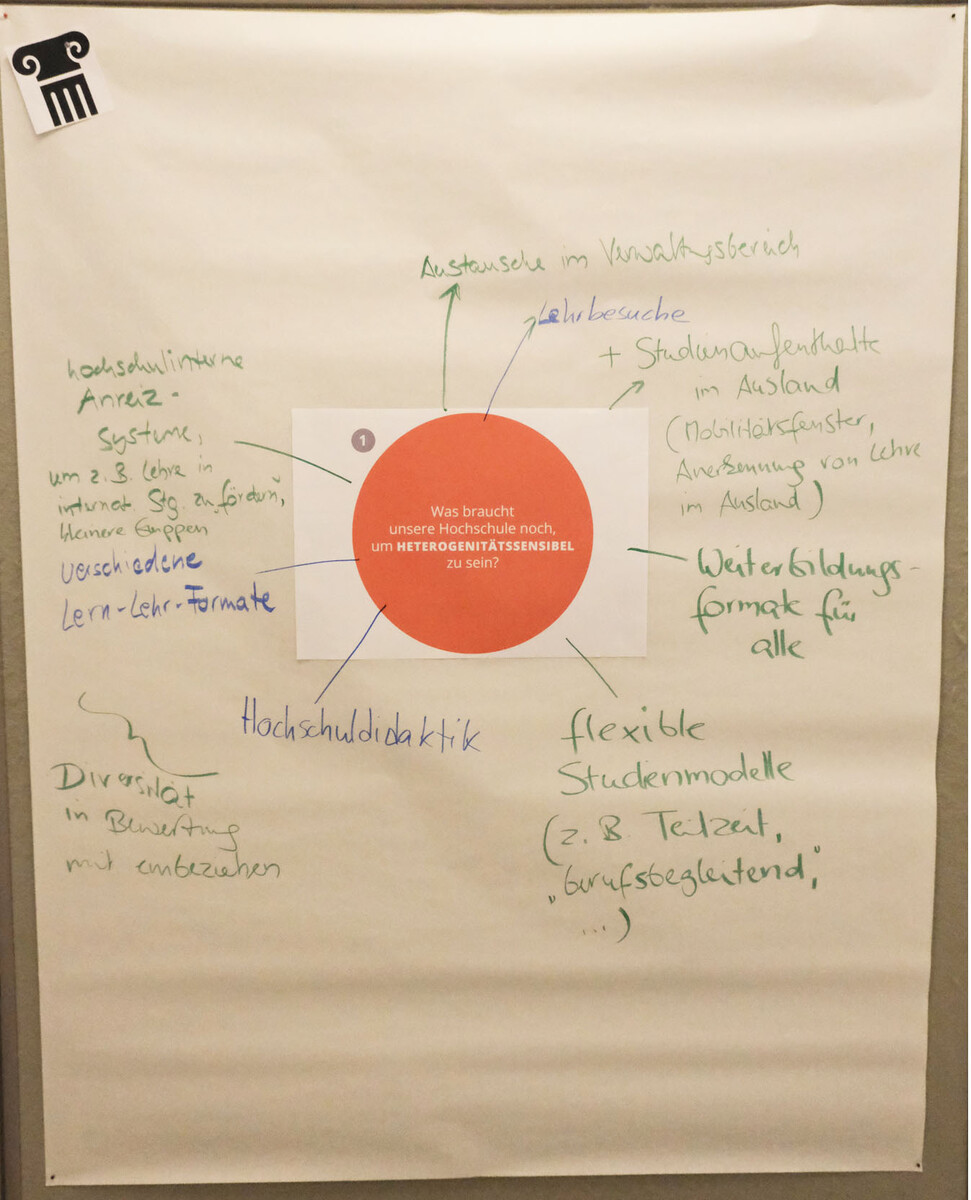 Austausche im Verwaltungsbereich
Lehrbesuche
+ Studienaufenthalte
im Ausland
(Mobilitätsfenster,
Anerkennung von Lehre
im Ausland)
hochschulinterne
Anreiz-
systeme,
um z. B. Lehre in
internat. Stg. zu „fördern“,
kleinere Gruppen
verschiedene
Lern-Lehr-Formate
1
Was braucht
unsere Hochschule noch,
um HETEROGENITÄTSSENSIBEL
zu sein?
Weiterbildungs-
formate für
alle
Hochschuldidaktik
flexible
Studienmodelle
(z. B. Teilzeit,
„berufsbegleitend“,
...)
Diversität
in Bewertung
mit einbeziehen